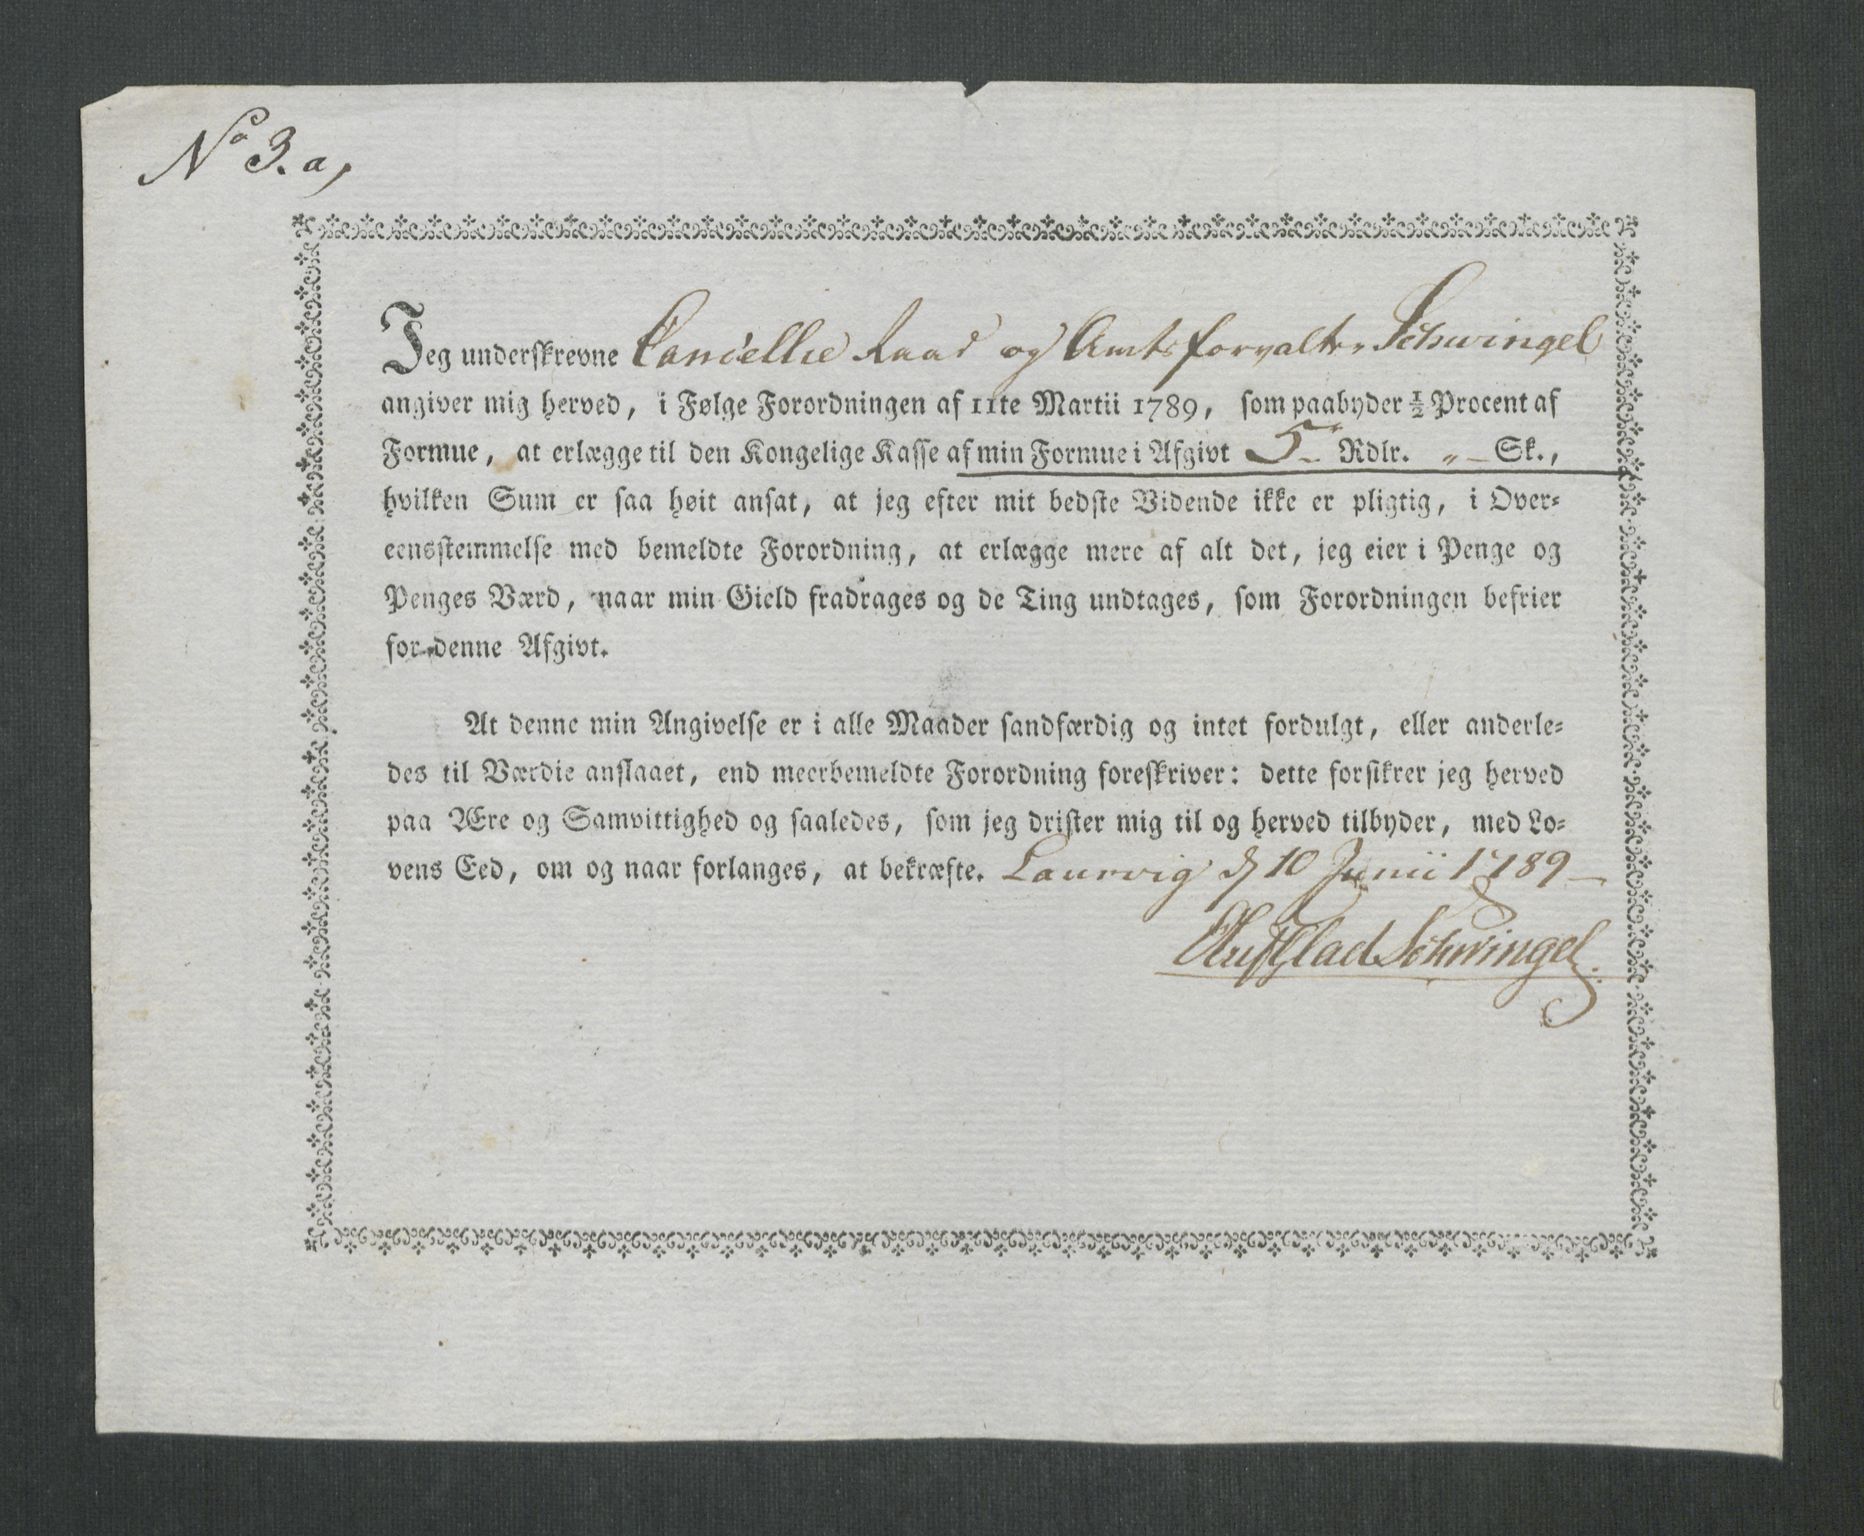 No 3. a,
Jeg underskrevne Cancellie Raad og Amtsforvalter Schwingel
angiver mig herved, i Følge Forordningen af 11te Martii 1789, som paabyder ½ Procent af
Formue, at erlægge til den Kongelige Kasse af min Formue i Afgivt 5 Rdlr. " – Sk.,
hvilken Sum er saa høit ansat, at jeg efter mit bedste Vidende ikke er pligtig, i Over-
eensstemmelse med bemeldte Forordning, at erlægge mere af alt det, jeg eier i Penge og
Penges Værd, naar min Gield fradrages og de Ting undtages, som Forordningen befrier
for denne Afgivt.
At denne min Angivelse er i alle Maader sandfærdig og intet fordulgt, eller anderle-
des til Værdie anslaaet, end meerbemeldte Forordning foreskriver: dette forsikrer jeg herved
paa Ære og Samvittighed og saaledes, som jeg drister mig til og herved tilbyder, med Lo-
vens Eed, om og naar forlanges, at bekræfte. Laurvig d 10 Junii 1789 –
Schwingel